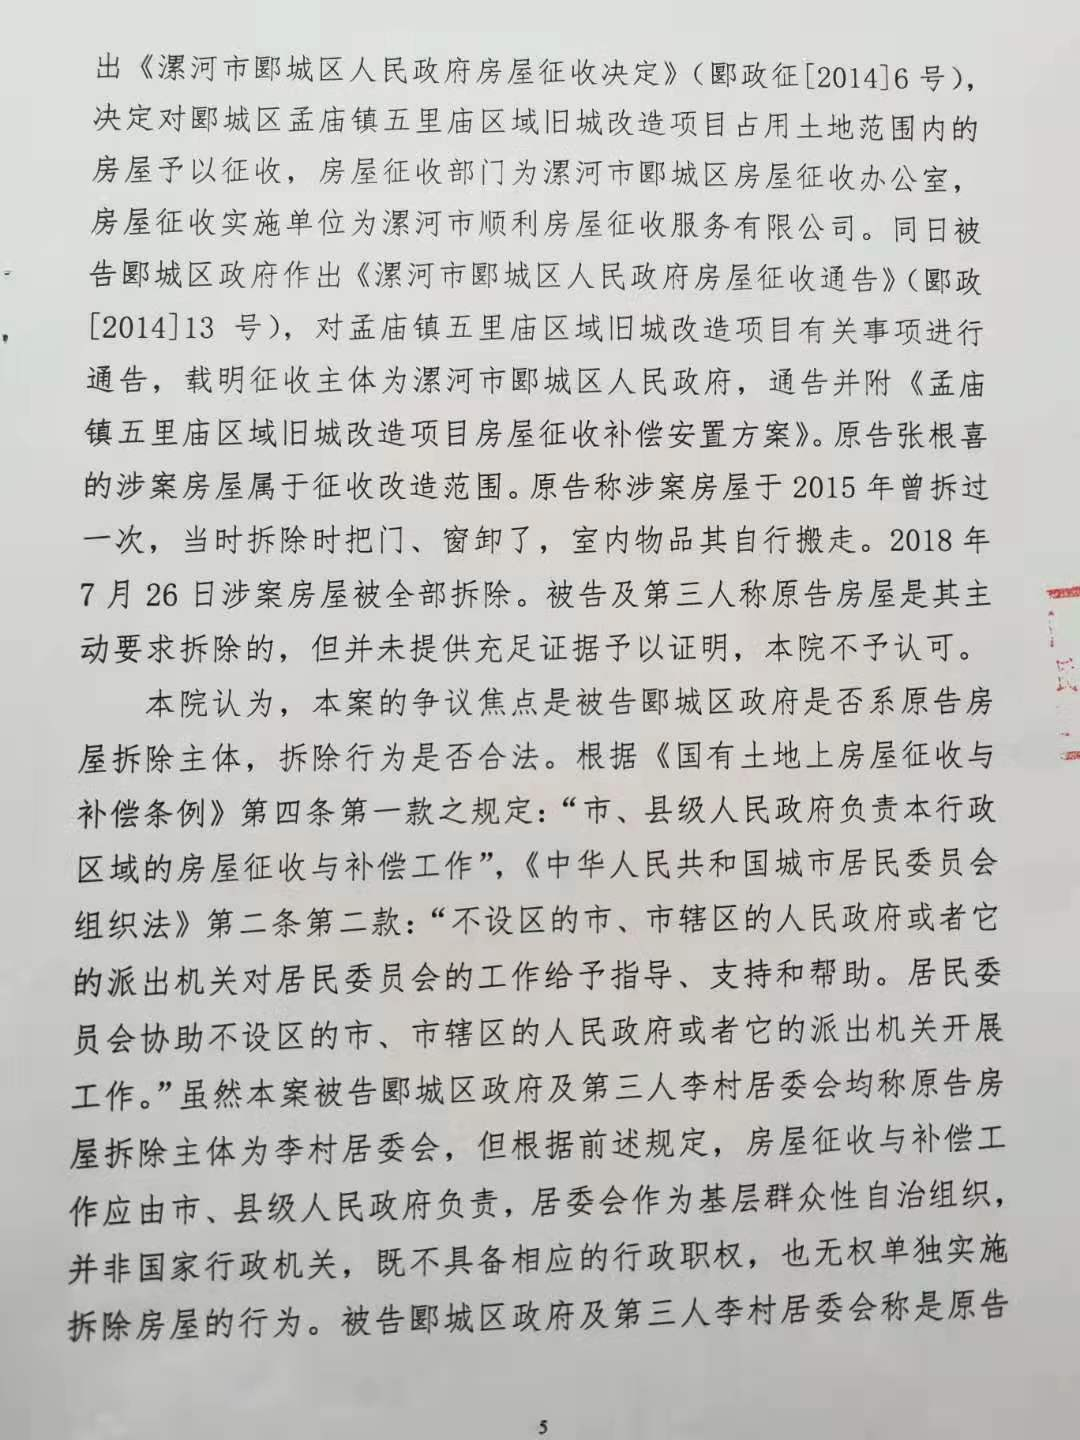 出《漯河市郾城区人民政府房屋征收决定》（郾政征[2014]6 号），
决定对郾城区孟庙镇五里庙区域旧城改造项目占用土地范围内的
房屋予以征收，房屋征收部门为漯河市郾城区房屋征收办公室，
房屋征收实施单位为漯河市顺利房屋征收服务有限公司。同日被
告郾城区政府作出《漯河市郾城区人民政府房屋征收通告》（郾政
[2014]13 号），对孟庙镇五里庙区域旧城改造项目有关事项进行
通告，载明征收主体为漯河市郾城区人民政府，通告并附《孟庙
镇五里庙区域旧城改造项目房屋征收补偿安置方案》。原告张根喜
的涉案房屋属于征收改造范围。原告称涉案房屋于 2015 年曾拆过
一次，当时拆除时把门、窗卸了，室内物品其自行搬走。2018 年
7 月 26 日涉案房屋被全部拆除。被告及第三人称原告房屋是其主
动要求拆除的，但并未提供充足证据予以证明，本院不予认可。
本院认为，本案的争议焦点是被告郾城区政府是否系原告房
屋拆除主体，拆除行为是否合法。根据《国有土地上房屋征收与
补偿条例》第四条第一款之规定：“市、县级人民政府负责本行政
区域的房屋征收与补偿工作”，《中华人民共和国城市居民委员会
组织法》第二条第二款：“不设区的市、市辖区的人民政府或者它
的派出机关对居民委员会的工作给予指导、支持和帮助。居民委
员会协助不设区的市、市辖区的人民政府或者它的派出机关开展
工作。”虽然本案被告郾城区政府及第三人李村居委会均称原告房
屋拆除主体为李村居委会，但根据前述规定，房屋征收与补偿工
作应由市、县级人民政府负责，居委会作为基层群众性自治组织，
并非国家行政机关，既不具备相应的行政职权，也无权单独实施
拆除房屋的行为。被告郾城区政府及第三人李村居委会称是原告
5